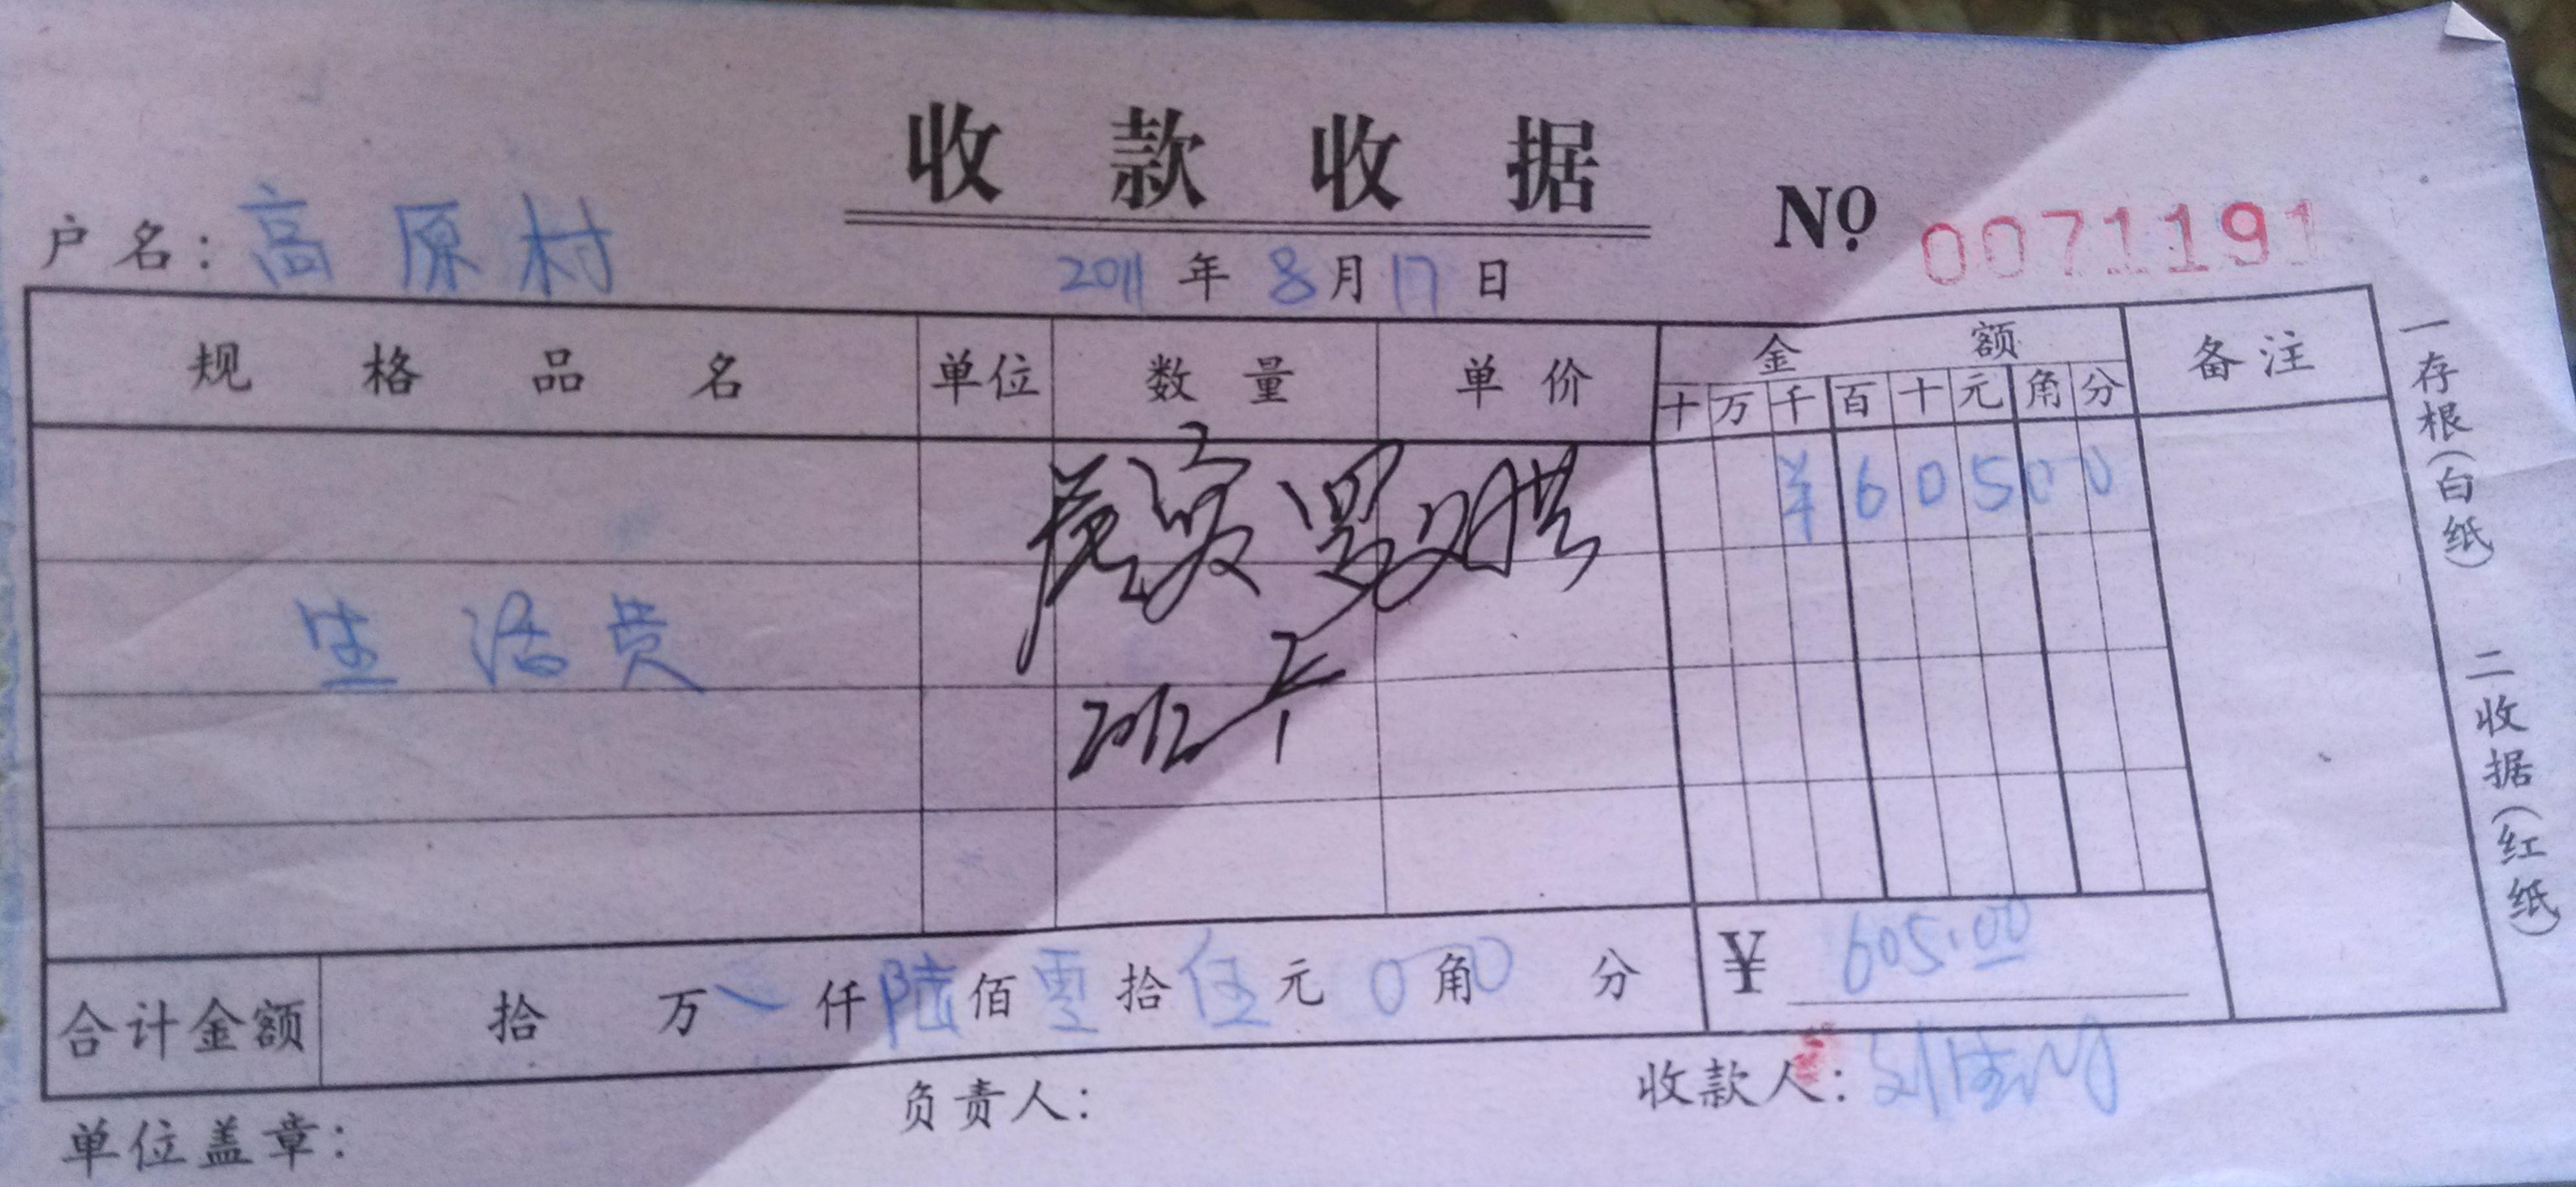 收款收据
No 0071191
户名：高原村
2011年8月17日
规格品名 单位 数量 单价 金额 备注
十 万 千 百 十 元 角 分
¥60500
生活费
2012
合计金额 拾 万 仟 陆 佰 零 拾 伍 元 0 角 0 分 ¥ 605.00
单位盖章： 负责人： 收款人：
一存根（白纸） 二收据（红纸）